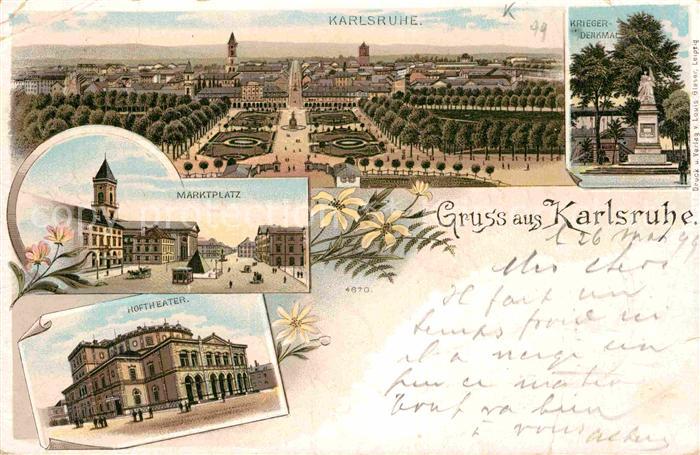 KARLSRUHE.
K
99
KRIEGER-
DENKMAL
Druck u. Verlag v. Louis Glaser, Leipzig
MARKTPLATZ
Gruss aus Karlsruhe.
4670.
HOFTHEATER.
le 26
Mes chers
Il fait un
temps froid
il a neigé un
peu ce matin
Tout va bien
à vous